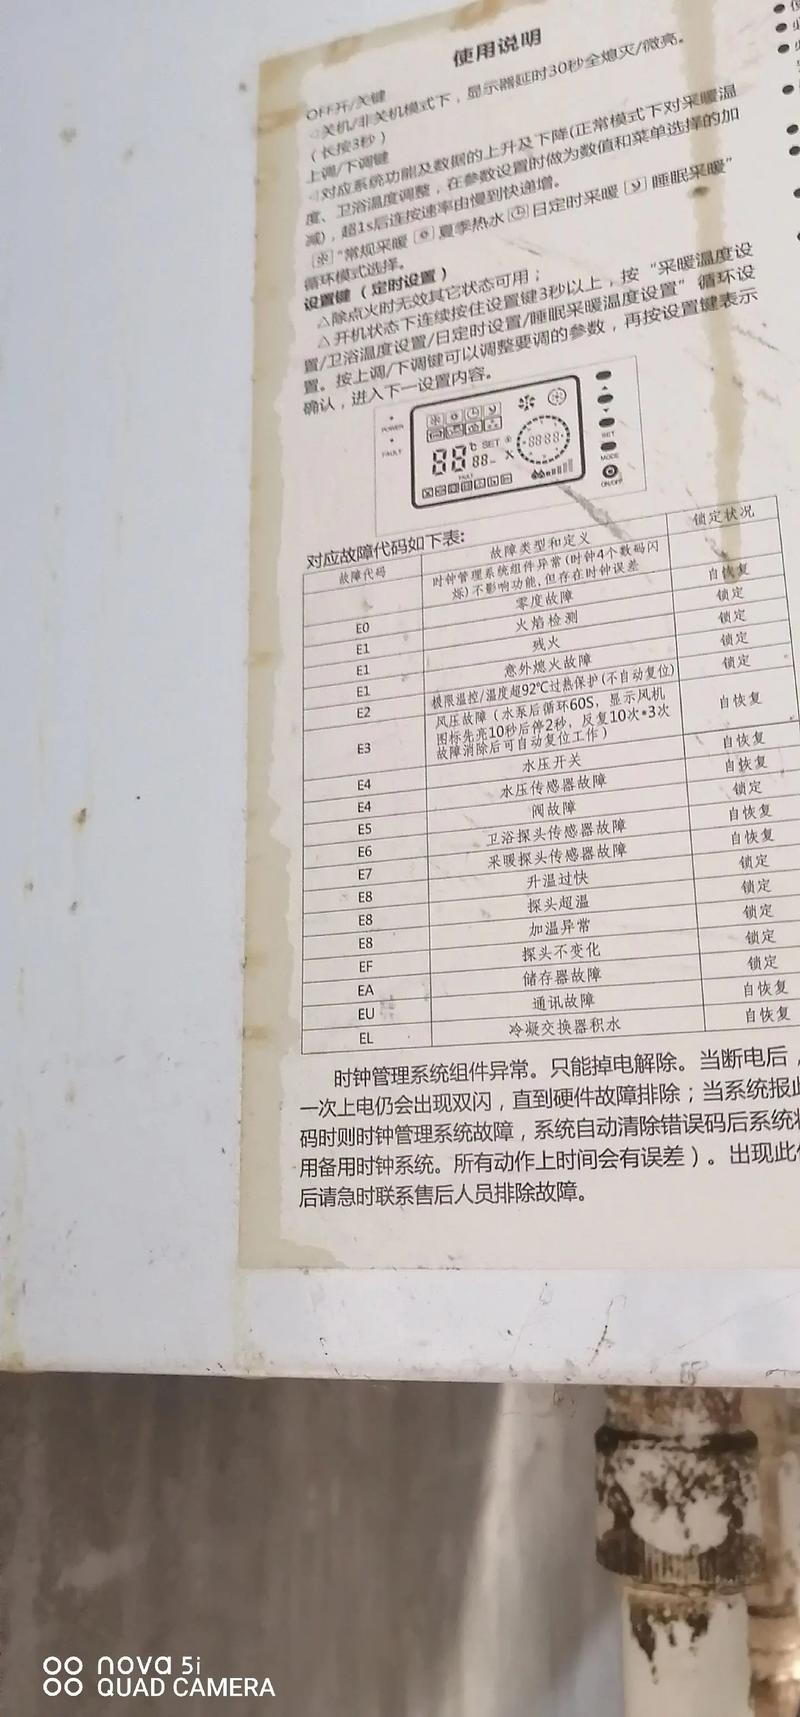 使用说明
OFF开/关键
◁关机/非关机模式下，显示器延时30秒全熄灭/微亮。
（长按3秒）
上调/下调键
◁对应系统功能及数据的上升及下降(正常模式下对采暖温
度、卫浴温度调整，在参数设置时做为数值和菜单选择的加
减)，超1s后连按速率由慢到快递增。
"常规采暖 夏季热水 日定时采暖 睡眠采暖"
循环模式选择。
设置键（定时设置）
△除点火时无效其它状态可用；
△开机状态下连续按住设置键3秒以上，按“采暖温度设
置/卫浴温度设置/日定时设置/睡眠采暖温度设置”循环设
置。按上调/下调键可以调整要调的参数，再按设置键表示
确认，进入下一设置内容。
POWER
FAULT
88 ℃ SET
88
88:88
SET
MODE
ON/OFF
对应故障代码如下表:
故障代码 故障类型和定义 锁定状况
时钟管理系统组件异常(时钟4个数码闪
烁)不影响功能,但存在时钟误差 自恢复
E0 零度故障 锁定
E1 火焰检测 锁定
E1 残火 锁定
E1 意外熄火故障 锁定
E2 极限温控/温度超92℃过热保护(不自动复位)
E3 风压故障（水泵后循环60S，显示风机 自恢复
图标先亮10秒后停2秒，反复10次*3次
故障消除后可自动复位工作）
E4 水压开关 自恢复
E4 水压传感器故障 自恢复
E5 阀故障 锁定
E6 卫浴探头传感器故障 自恢复
E7 采暖探头传感器故障 自恢复
E8 升温过快 锁定
E8 探头超温 锁定
E8 加温异常 锁定
EF 探头不变化 锁定
EA 储存器故障 锁定
EU 通讯故障 自恢复
EL 冷凝交换器积水 自恢复
时钟管理系统组件异常。只能掉电解除。当断电后，
一次上电仍会出现双闪，直到硬件故障排除；当系统报此
码时则时钟管理系统故障，系统自动清除错误码后系统
用备用时钟系统。所有动作上时间会有误差）。出现此
后请急时联系售后人员排除故障。
nova 5i
QUAD CAMERA